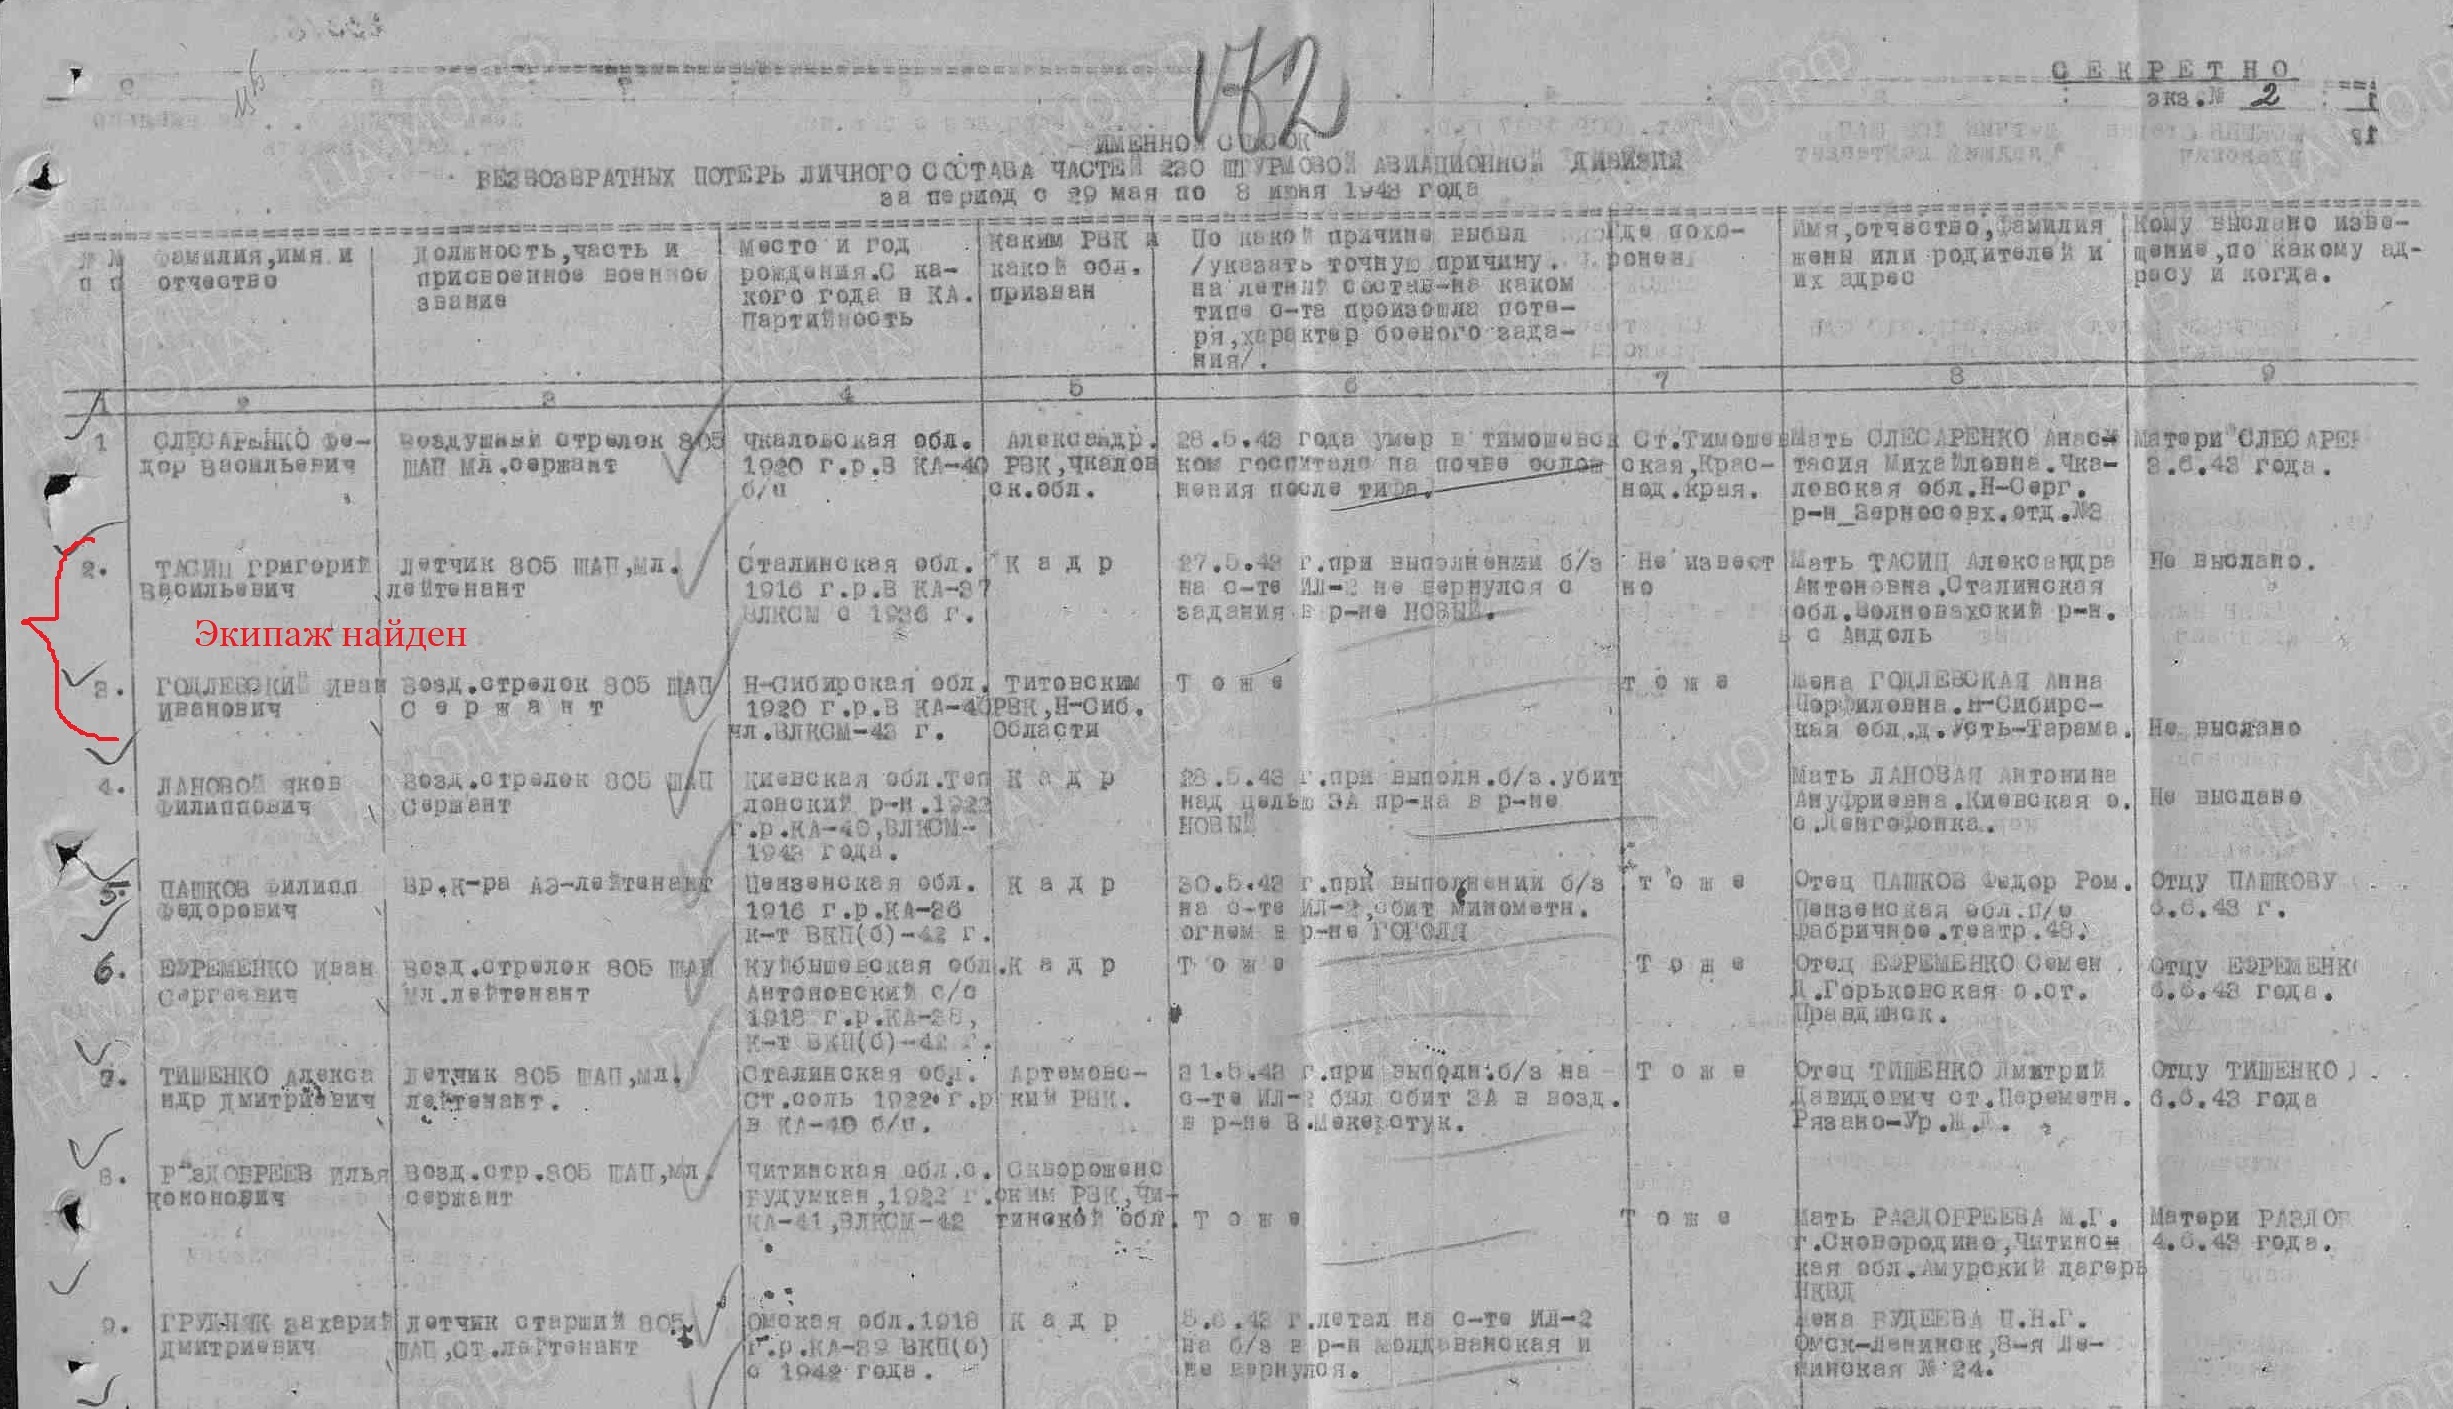 172
СЕКРЕТНО
экз.№ 2
ИМЕННОЙ СПИСОК
БЕЗВОЗВРАТНЫХ ПОТЕРЬ ЛИЧНОГО СОСТАВА ЧАСТЕЙ 230 ШТУРМОВОЙ АВИАЦИОННОЙ ДИВИЗИИ
за период с 29 мая по 8 июня 1943 года
№ №
п п
Фамилия,имя и
отчество
Должность,часть и
присвоенное военное
звание
Место и год
рождения.С ка-
кого года в КА.
Партийность
Каким РВК и
какой обл.
призван
По какой причине выбыл
/указать точную причину.
на летный состав-на каком
типе с-та произошла поте-
ря,характер боевого зада-
ния/.
Где похо-
ронен
Имя,отчество,фамилия
жены или родителей и
их адрес
Кому выслано изве-
щение,по какому ад-
ресу и когда.
1 2 3 4 5 6 7 8 9
1
СЛЕСАРЕНКО Фе-
дор Васильевич
Воздушный стрелок 805
ШАП мл.сержант
Чкаловская обл.
1920 г.р.В КА-40
б/п
Александр.
РВК,Чкалов
ск.обл.
28.5.43 года умер в Тимошевск
ком госпитале на почве ослож
нения после тифа.
Ст.Тимошев
ская,Крас-
нод.края.
Мать СЛЕСАРЕНКО Анас-
тасия Михайловна.Чка-
ловская обл.Н-Серг.
р-н Зерносовх.отд.№3
Матери СЛЕСАРЕН
3.6.43 года.
2.
ТАСИЦ Григорий
Васильевич
Летчик 805 ШАП,мл.
лейтенант
Сталинская обл.
1916 г.р.В КА-37
ВЛКСМ с 1936 г.
К а д р
27.5.43 г.при выполнении б/з
на с-те ИЛ-2 не вернулся с
задания в р-не НОВЫЙ.
Не извест
но
Мать ТАСИЦ Александра
Антоновна.Сталинская
обл.Волновахский р-н.
с Андоль
Не выслано.
Экипаж найден
3.
ГОДЛЕВСКИЙ Иван
Иванович
Возд.стрелок 805 ШАП
С е р ж а н т
Н-Сибирская обл.
1920 г.р.В КА-40
чл.ВЛКСМ-43 г.
Титовским
РВК,Н-Сиб.
Области
Т о ж е
т о ж е
Жена ГОДЛЕВСКАЯ Анна
Порфиловна.Н-Сибирс-
кая обл.д.Усть-Тарама.
Не выслано
4.
ЛАНОВОЙ Яков
Филиппович
Возд.стрелок 805 ШАП
Сержант
Киевская обл.Теп
ловский р-н.1922
г.р.КА-40,ВЛКСМ-
1943 года.
К а д р
28.5.43 г.при выполн.б/з.убит
над целью ЗА пр-ка в р-не
НОВЫЙ
Мать ЛАНОВАЯ Антонина
Ануфриевна.Киевская о.
с.Денгофонка.
Не выслано
5.
ПАШКОВ Филипп
Федорович
Вр.к-ра АЭ-лейтенант
Пензенская обл.
1916 г.р.КА-36
к-т ВКП(б)-42 г.
К а д р
30.5.43 г.при выполнении б/з
на с-те ИЛ-2,сбит минометн.
огнем в р-не ГОГОЛЯ
т о ж е
Отец ПАШКОВ Федор Ром.
Пензенская обл.п/о
Фабричное.театр.48.
Отцу ПАШКОВУ
6.6.43 г.
6.
ЕФРЕМЕНКО Иван
Сергеевич
Возд.стрелок 805 ШАП
мл.лейтенант
Куйбышевская обл.
Антоновский с/с
1918 г.р.КА-38,
к-т ВКП(б)-42 г.
К а д р
Т о ж е
Т о ж е
Отец ЕФРЕМЕНКО Семен
Д.Горьковская о.ст.
Правдинск.
Отцу ЕФРЕМЕНК
6.6.43 года.
7.
ТИШЕНКО Алекса
ндр Дмитриевич
Летчик 805 ШАП,мл.
лейтенант.
Сталинская обл.
Ст.соль 1922 г.р
в КА-40 б/п.
Артемовс-
кий РВК.
31.5.43 г.при выполн.б/з на
с-те ИЛ-2 был сбит ЗА в возд.
в р-не В.Мекеротук.
Т о ж е
Отец ТИШЕНКО Дмитрий
Давидович ст.Переметн.
Рязано-Ур.Ж.Д.
Отцу ТИШЕНКО
6.6.43 года
8.
РАЗДОБРЕЕВ Илья
Кононович
Возд.стр.805 ШАП,мл.
сержант
Читинская обл.с.
Будумкан,1922 г.
КА-41,ВЛКСМ-42
Сквороженс
ким РВК,Чи-
тинской обл.
Т о ж е
Т о ж е
Мать РАЗДОБРЕЕВА М.Г.
г.Сковородино,Читинс-
кая обл.Амурский лагерь
НКВД
Матери РАЗДОБ
4.6.43 года.
9.
ГРУДНЯК Захарий
Дмитриевич
Летчик старший 805
ШАП,ст.лейтенант
Омская обл.1918
г.р.КА-39 ВКП(б)
с 1942 года.
К а д р
5.6.43 г.летал на с-те ИЛ-2
на б/з в р-н Молдаванская и
не вернулся.
Жена БУДЕЕВА П.Н.Г.
Омск-Ленинск,8-я Ле-
нинская № 24.